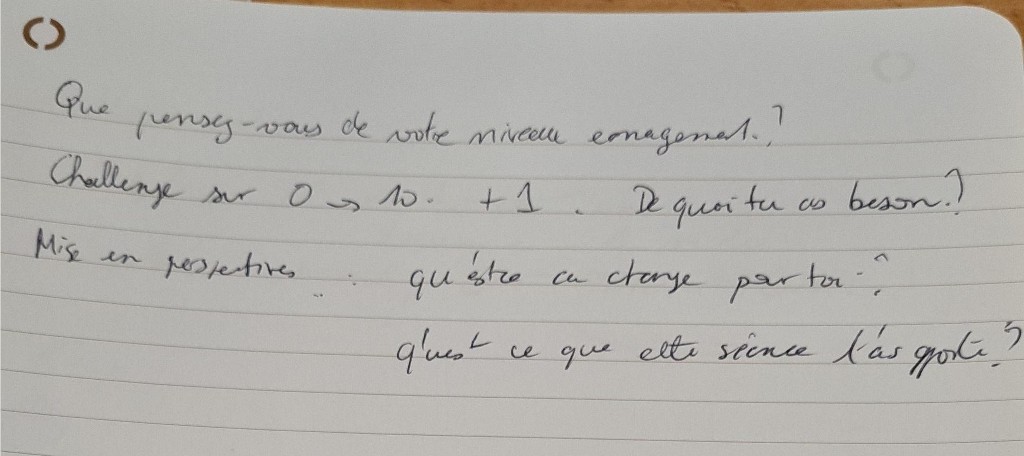 Que pensez-vous de votre niveau ?
Challenge sur 0 → 10. +1. De quoi tu as beson ?
Mise en perspectives : qu'est ce ca change par toi ?
q'uest ce que cette séance t'as